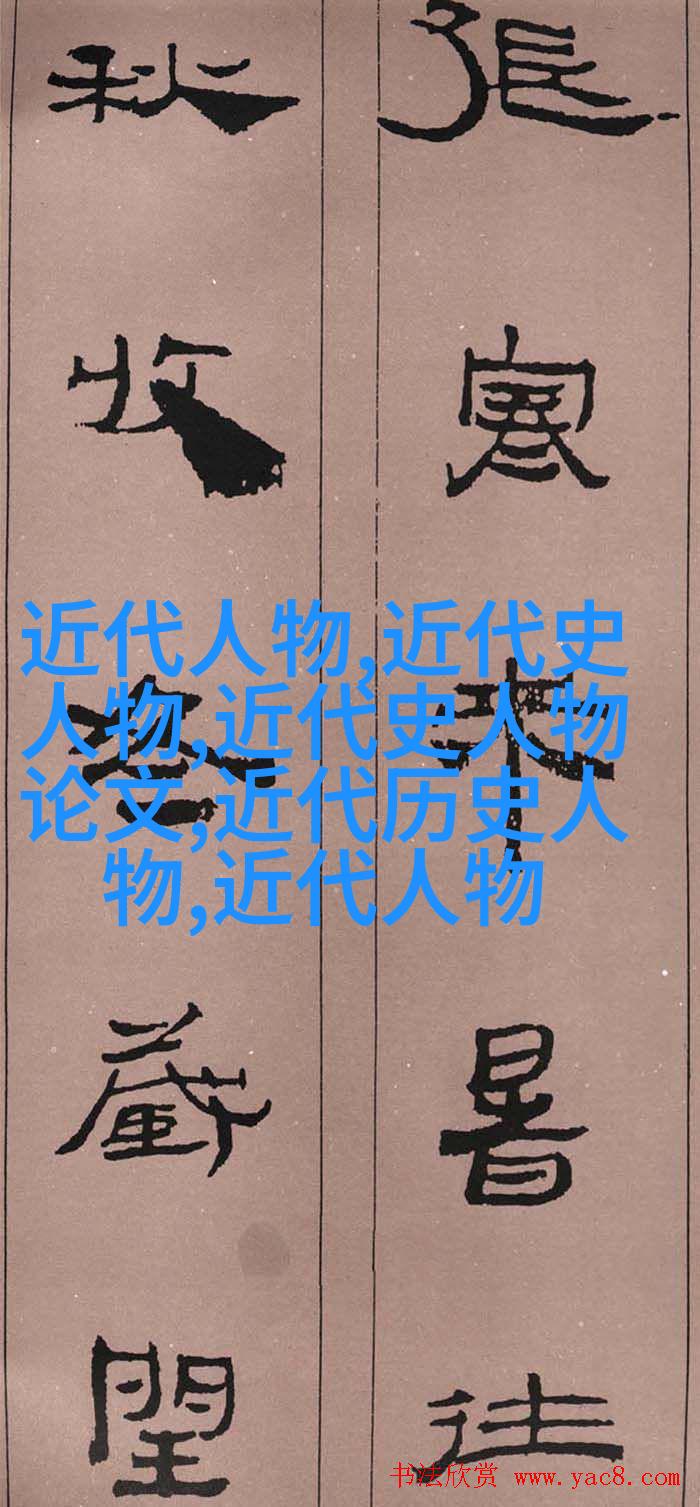 張寒來暑往
秋收冬藏閏
近代人物,近代史
人物,近代史人物
论文,近代历史人
物,近代人物
书法欣赏 www.yac8.com